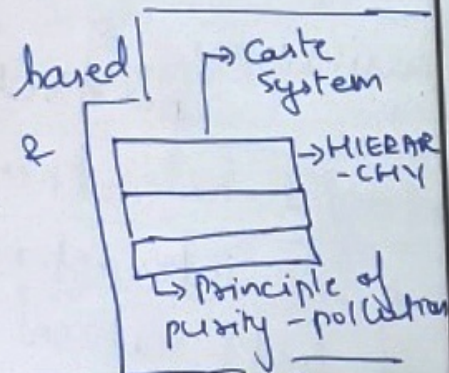 based
&
→ Caste
System
→ HIERAR
-CHY
↳ Principle of
purity - pollution